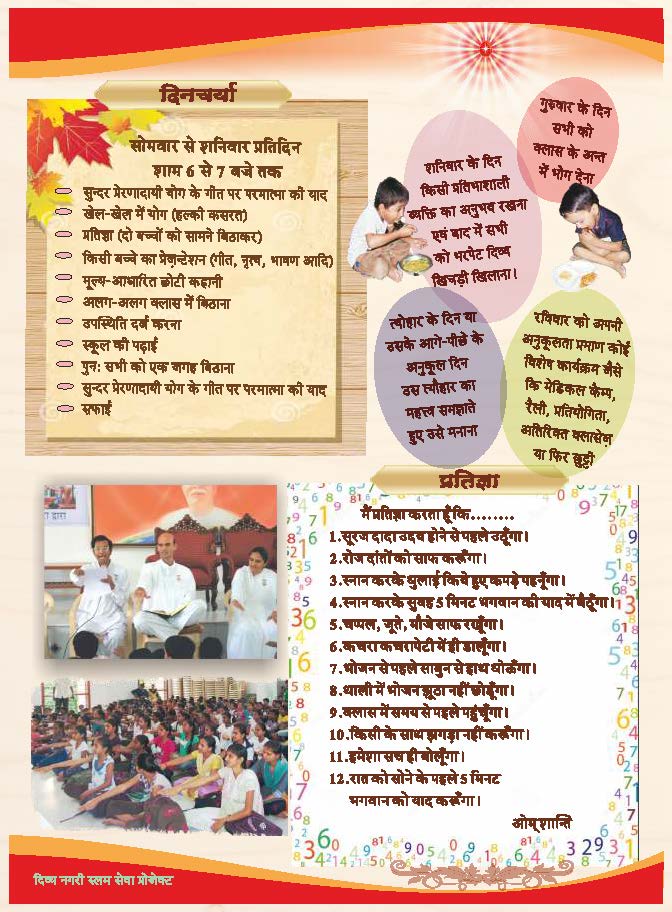 दिनचर्या
सोमवार से शनिवार प्रतिदिन
शाम 6 से 7 बजे तक
सुन्दर प्रेरणादायी योग के गीत पर परमात्मा की याद
खेल-खेल में योग (हल्की कसरत)
प्रतिज्ञा (दो बच्चों को सामने बिठाकर)
किसी बच्चे का प्रेज़न्टेशन (गीत, नृत्य, भाषण आदि)
मूल्य-आधारित छोटी कहानी
अलग-अलग क्लास में बिठाना
उपस्थिति दर्ज करना
स्कूल की पढ़ाई
पुन: सभी को एक जगह बिठाना
सुन्दर प्रेरणादायी योग के गीत पर परमात्मा की याद
सफाई
गुरुवार के दिन
सभी को
क्लास के अन्त
में भोग देना
शनिवार के दिन
किसी प्रतिभाशाली
व्यक्ति का अनुभव रखना
एवं बाद में सभी
को भरपेट दिव्य
खिचड़ी खिलाना।
त्योहार के दिन या
उसके आगे-पीछे के
अनुकूल दिन
उस त्यौहार का
महत्त्व समझाते
हुए उसे मनाना
रविवार को अपनी
अनुकूलता प्रमाण कोई
विशेष कार्यक्रम जैसे
कि मेडिकल कैम्प,
रैली, प्रतियोगिता,
अतिरिक्त क्लासेज़
या फिर छुट्टी
प्रतिज्ञा
मैं प्रतिज्ञा करता हूँ कि........
1.सूरज दादा उदय होने से पहले उठूँगा।
2.रोज दांतों को साफ करूँगा।
3.स्नान करके धुलाई किये हुए कपड़े पहनूँगा।
4.स्नान करके सुबह 5 मिनट भगवान की याद में बैठूँगा।
5.चप्पल, जूते, मौजे साफ रखूँगा।
6.कचरा कचरापेटी में ही डालूँगा।
7.भोजन से पहले साबुन से हाथ धोऊँगा।
8.थाली में भोजन झूठा नहीं छोडूँगा।
9.क्लास में समय से पहले पहुंचूँगा।
10.किसी के साथ झगड़ा नहीं करूँगा।
11.हमेशा सच ही बोलूँगा।
12.रात को सोने के पहले 5 मिनट
भगवान को याद करूँगा।
ओम् शान्ति
दिव्य नगरी स्लम सेवा प्रोजेक्ट